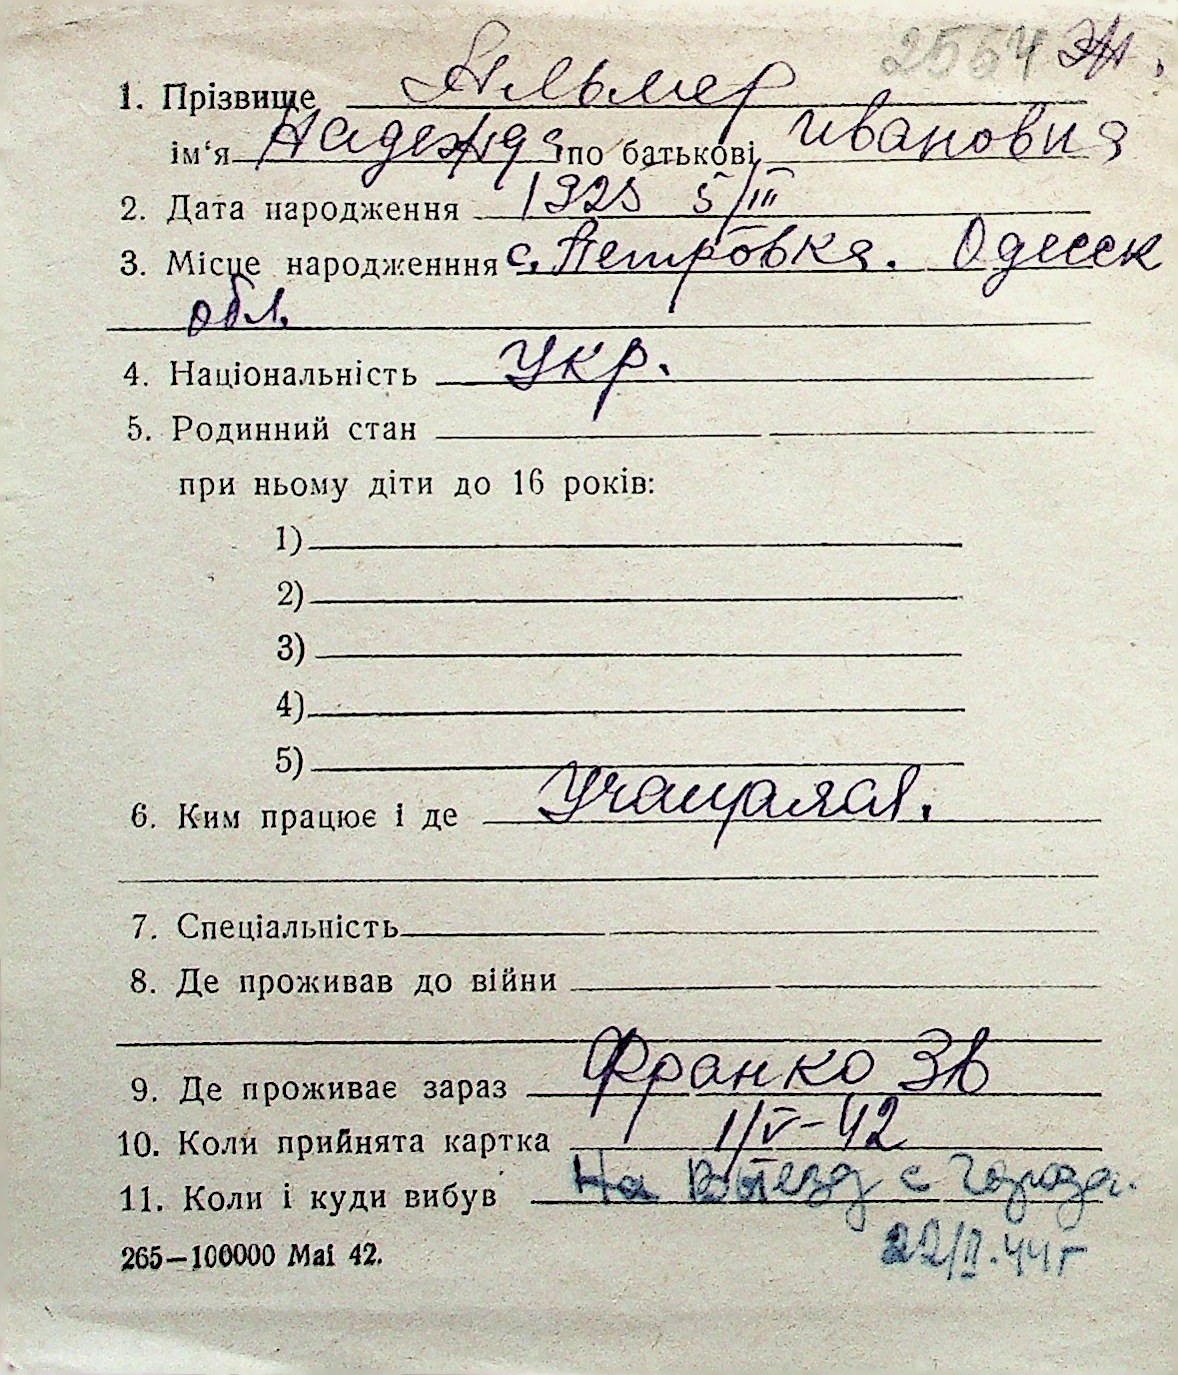 2554 ЭЛ.
1. Прізвище Яльмер
ім‘я Надежда по батькові Ивановна
2. Дата народження 1925 5/III
3. Місце народженння с. Петровка. Одесск
обл.
4. Національність Укр.
5. Родинний стан
при ньому діти до 16 років:
1)
2)
3)
4)
5)
6. Ким працює і де Учащаяся.
7. Спеціальність
8. Де проживав до війни
9. Де проживає зараз Франко 3в
10. Коли прийнята картка 1/V-42
11. Коли і куди вибув На Выезд с города.
22/II.44г
265—100000 Mai 42.